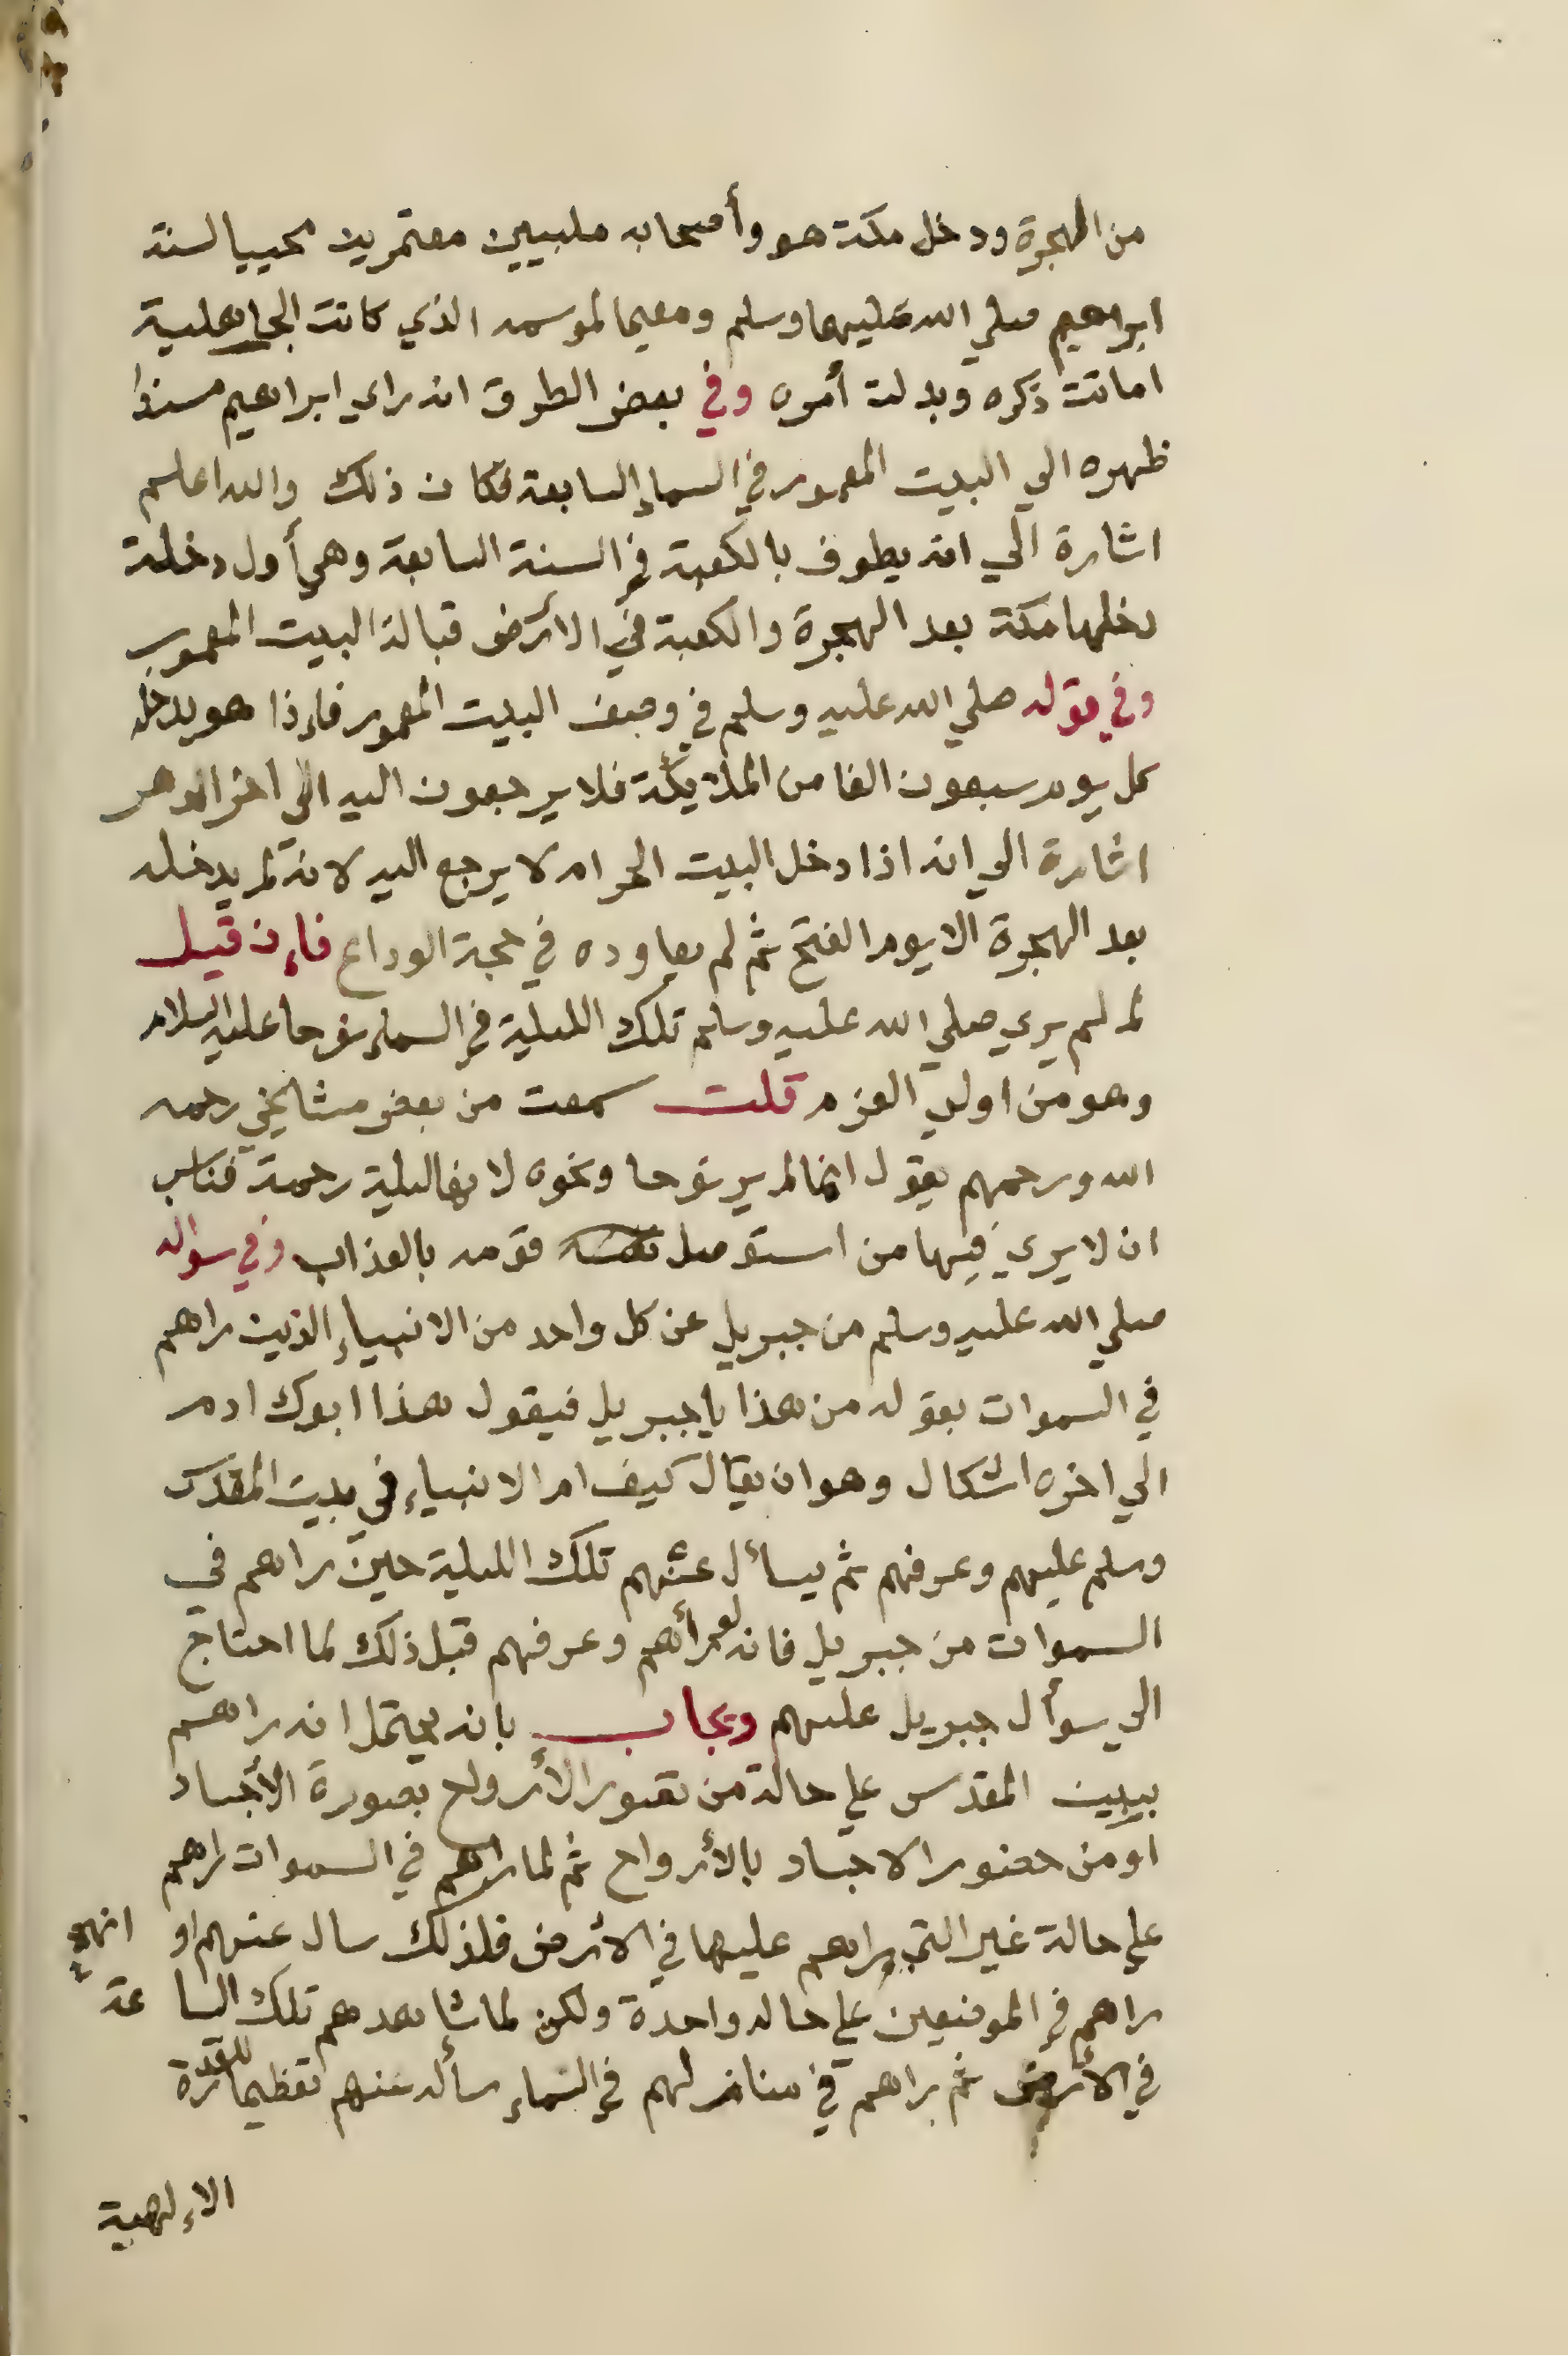 من الهجرة ودخل مكة هو وأصحابه ملبيين معتمرين محييا لسنة
ابراهيم صلي الله عليهما وسلم ومقيما لموسمه الذي كانت الجاهلية
اماتت ذكره وبدلت أمره وفي بعض الطرق انه راي ابراهيم مسندا
ظهره الي البيت المعمور في السماء السابعة فكان ذلك والله اعلم
اشارة الي انه يطوف بالكعبة في السنة السابعة وهي أول دخلة
دخلها مكة بعد الهجرة والكعبة في الأرض قبالة البيت المعمور
وفي قوله صلي الله عليه وسلم في وصف البيت المعمور فإذا هو يدخله
كل يوم سبعون الفا من الملائيكة فلا يرجعون اليه الي اخر الدهر
اشارة الي انه اذا دخل البيت الحرام لا يرجع اليه لانه لم يدخله
بعد الهجرة الا يوم الفتح ثم لم يعاوده في حجة الوداع فإن قيل
لم لم يري صلي الله عليه وسلم تلك الليلة في السماء نوحا عليه السلام
وهو من اولي العزم قلت سمعت من بعض مشايخي رحمه
الله ورحمهم يقول انما لم ير نوحا ونحوه لانها ليلة رحمة فناسب
ان لا يري فيها من استوصل قومه بالعذاب وفي سواله
صلي الله عليه وسلم من جبريل عن كل واحد من الانبياء الذين راهم
في السموات بقوله من هذا يا جبريل فيقول هذا ابوك ادم
الي اخره اشكال وهو ان يقال كيف ام الانبياء في بيت المقدس
وسلم عليهم وعرفهم ثم يسأل عنهم تلك الليلة حين راهم في
السموات من جبريل فانه لو رأهم وعرفهم قبل ذلك لما احتاج
الي سوأل جبريل عليهم ويجاب بانه يحتمل انه راهم
ببيت المقدس علي حالة من تصور الأرواح بصورة الأجساد
او من حضور الاجساد بالأرواح ثم لما راهم في السموات راهم
علي حالة غير التي راهم عليها في الأرض فلذلك سال عنهم او انهم
راهم في الموضعين علي حاله واحدة ولكن لما شاهدهم تلك الساعة
في الأرض ثم راهم في منازلهم في السماء سأله عنهم تعظيما للقدرة
الإلهية